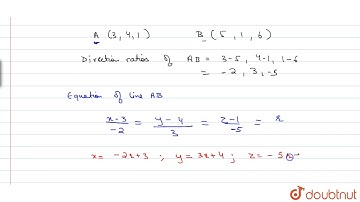 A (3, 4, 1) B (5, 1, 6)
Direction ratios of AB = 3-5, 4-1, 1-6
= -2, 3, -5
Equation of line AB
x-3/-2 = y-4/3 = z-1/-5 = r
x = -2r+3 ; y = 3r+4 ; z = -5
doubtnut